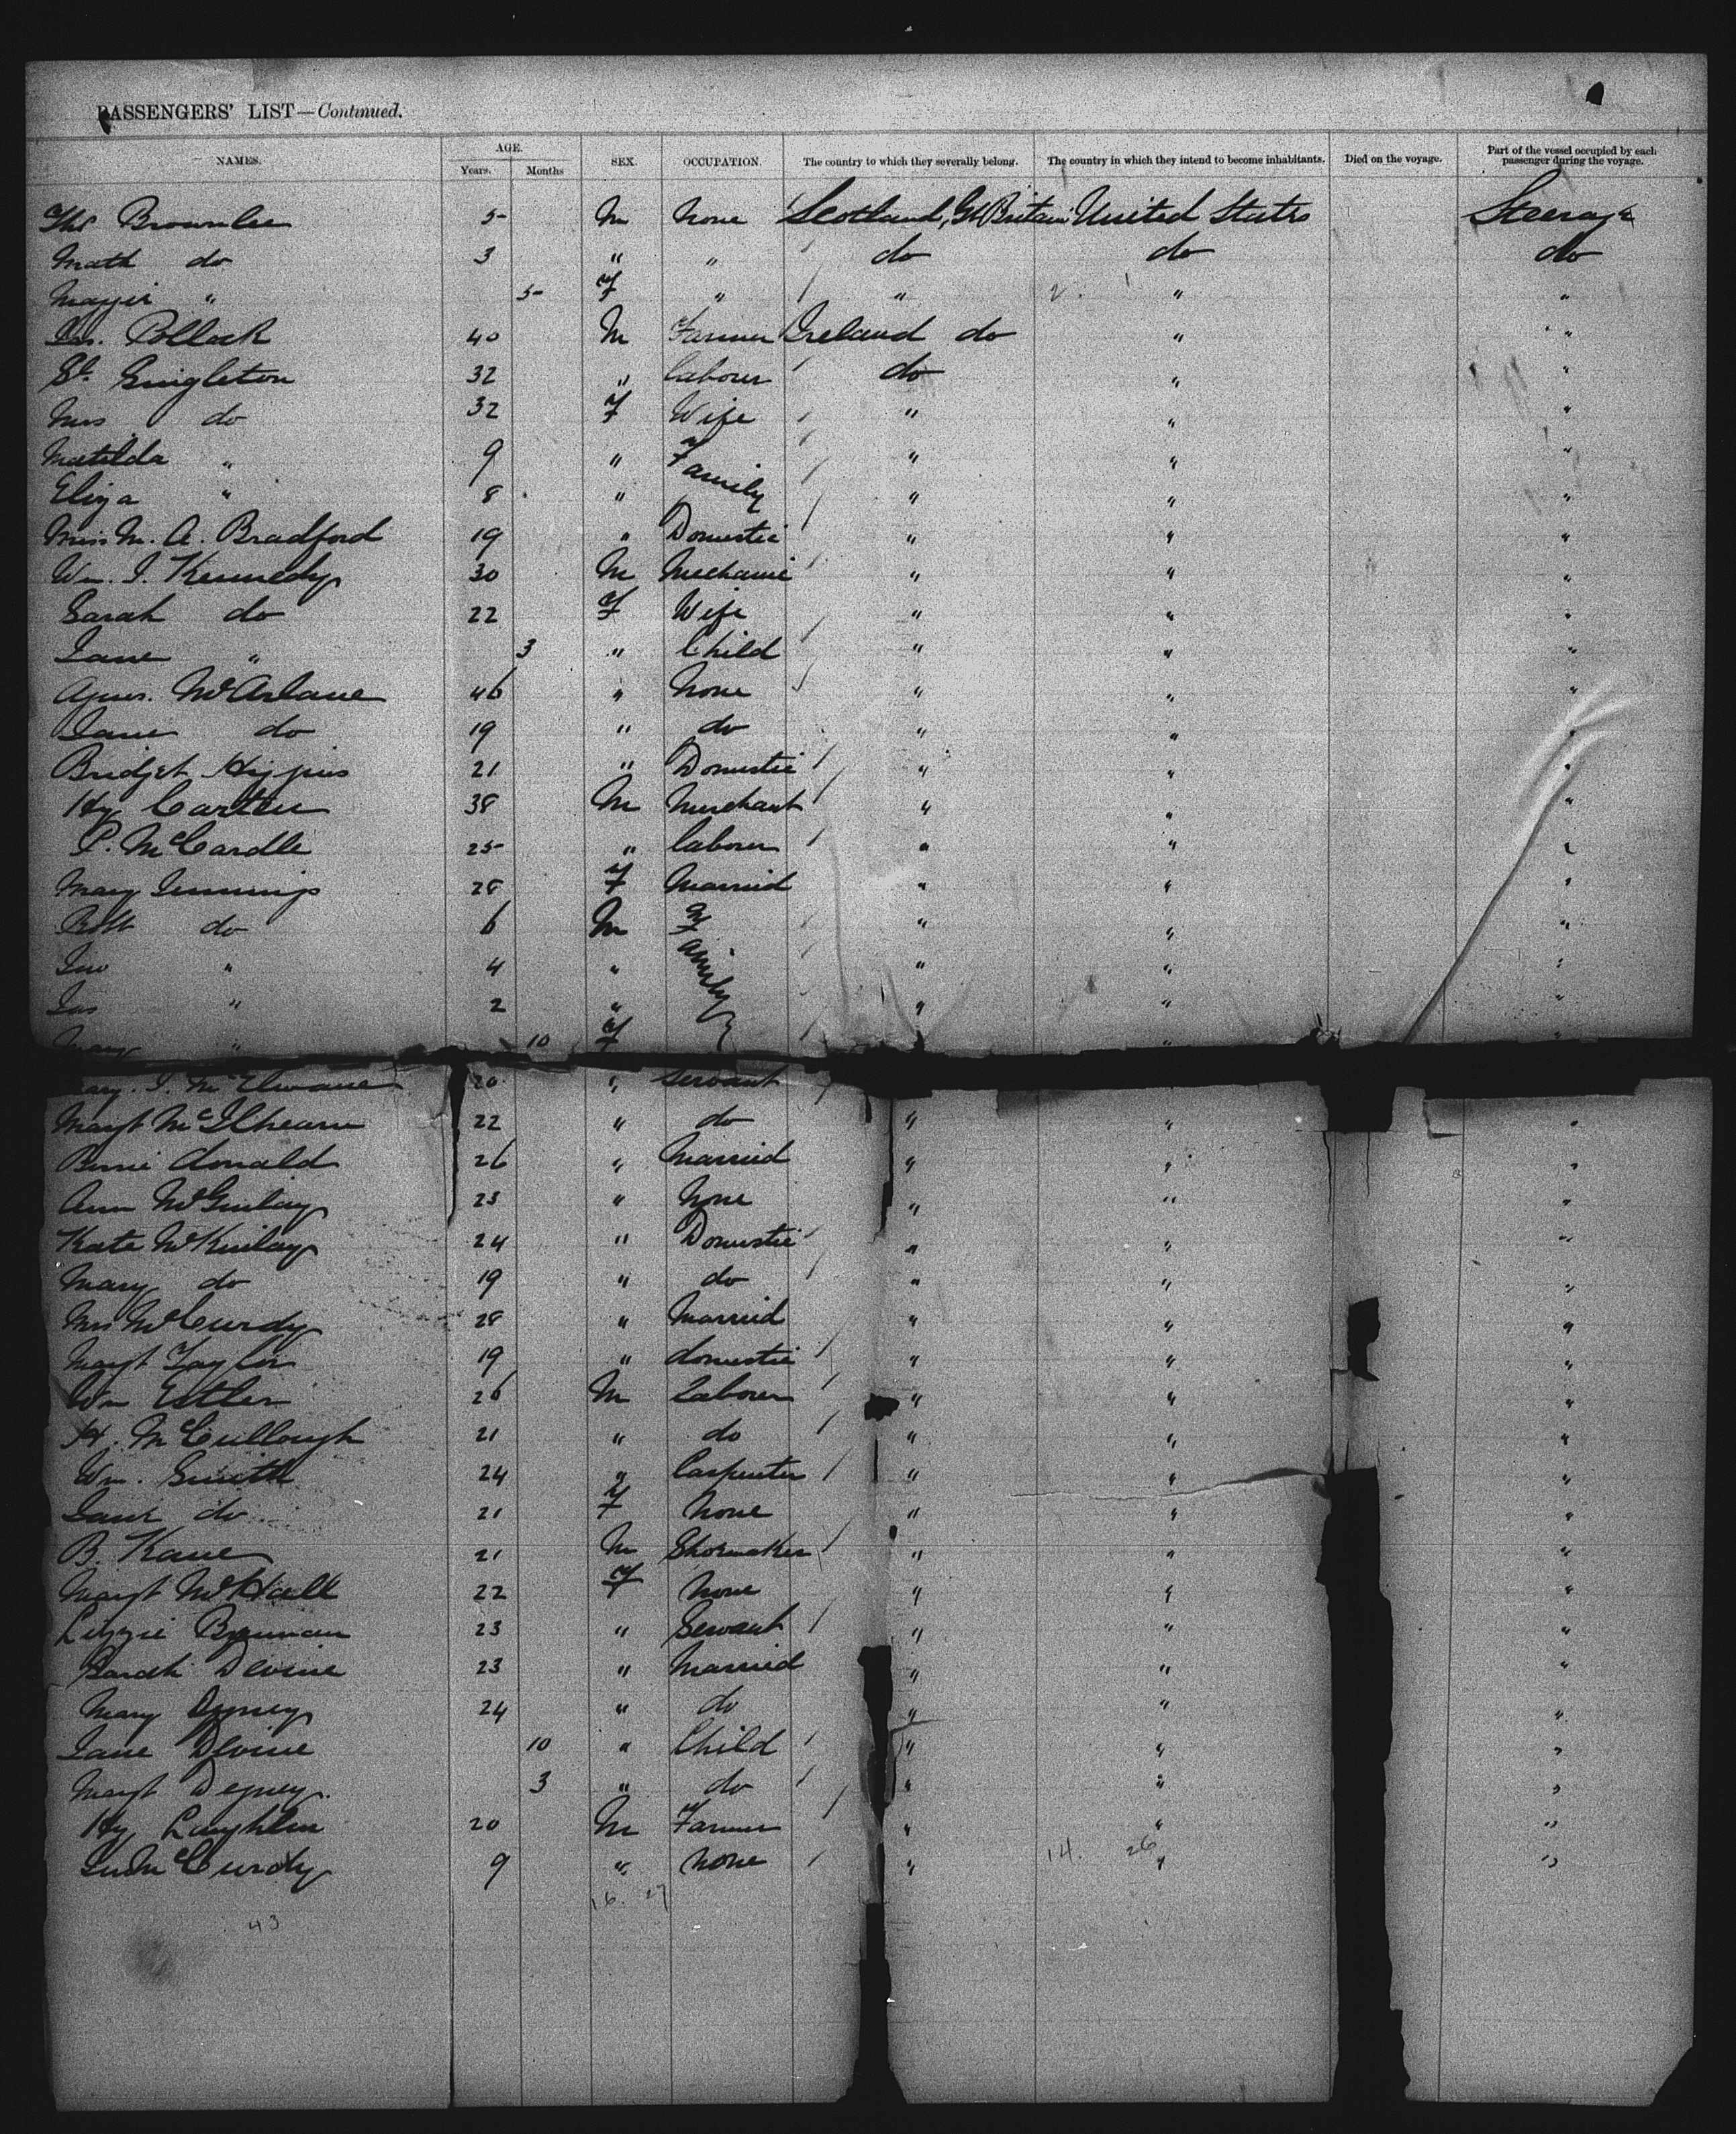 PASSENGERS' LIST—Continued.
NAMES. AGE. Years. Months SEX. OCCUPATION. The country to which they severally belong. The country in which they intend to become inhabitants. Died on the voyage. Part of the vessel occupied by each passenger during the voyage.
Ths Brownlee 5 M None Scotland, Gt Britain United States Steerage
Math do 3 " " do do do
5 F " " " "
Jas. Pollock 40 M Farmer Ireland do " "
Singleton 32 " laborer do " "
Mrs do 32 F Wife " " "
Matilda " 9 " Family " " "
Eliza " 8 " " " "
Miss M. A. Bradford 19 " Domestic " " "
Wm. J. Kennedy 30 M Mechanic " " "
Sarah do 22 F Wife " " "
Jane " 3 " Child " " "
Agnes. McArlane 46 " None " " "
Jane do 19 " do " " "
Bridget Higgins 21 " Domestic " " "
Hy Carten 38 M Merchant " " "
P. McCardle 25 " laborer " " "
Mary Jennings 28 F Married " " "
Robt do 6 M Family " " "
Jno " 4 " " " "
Jas " 2 " " " "
Mary " 10 F " "
J. McElwane 20 " Servant
Margt McIlhearn 22 " do " " "
Donald 26 " Married " " "
Ann McGinlay 23 " None " " "
Kate McKinlay 24 " Domestic " " "
Mary do 19 " do " " "
Mrs McCurdy 28 " Married " " "
Margt Taylor 19 " domestic " " "
Wm 26 M Laborer " " "
H. McCullough 21 " do " " "
Wm. Smith 24 " Carpenter " " "
Jane do 21 F None " " "
B. Kane 21 M Shoemaker " " "
Margt McHall 22 F None " " "
Lizzie 23 " Servant " " "
Sarah Devine 23 " Married " " "
Mary 24 " do " " "
Jane Devine 10 " Child " " "
Margt 3 " do " " "
Hy Laughlin 20 M Farmer " " "
McCurdy 9 " None " 14. 26 " "
16. 27
43